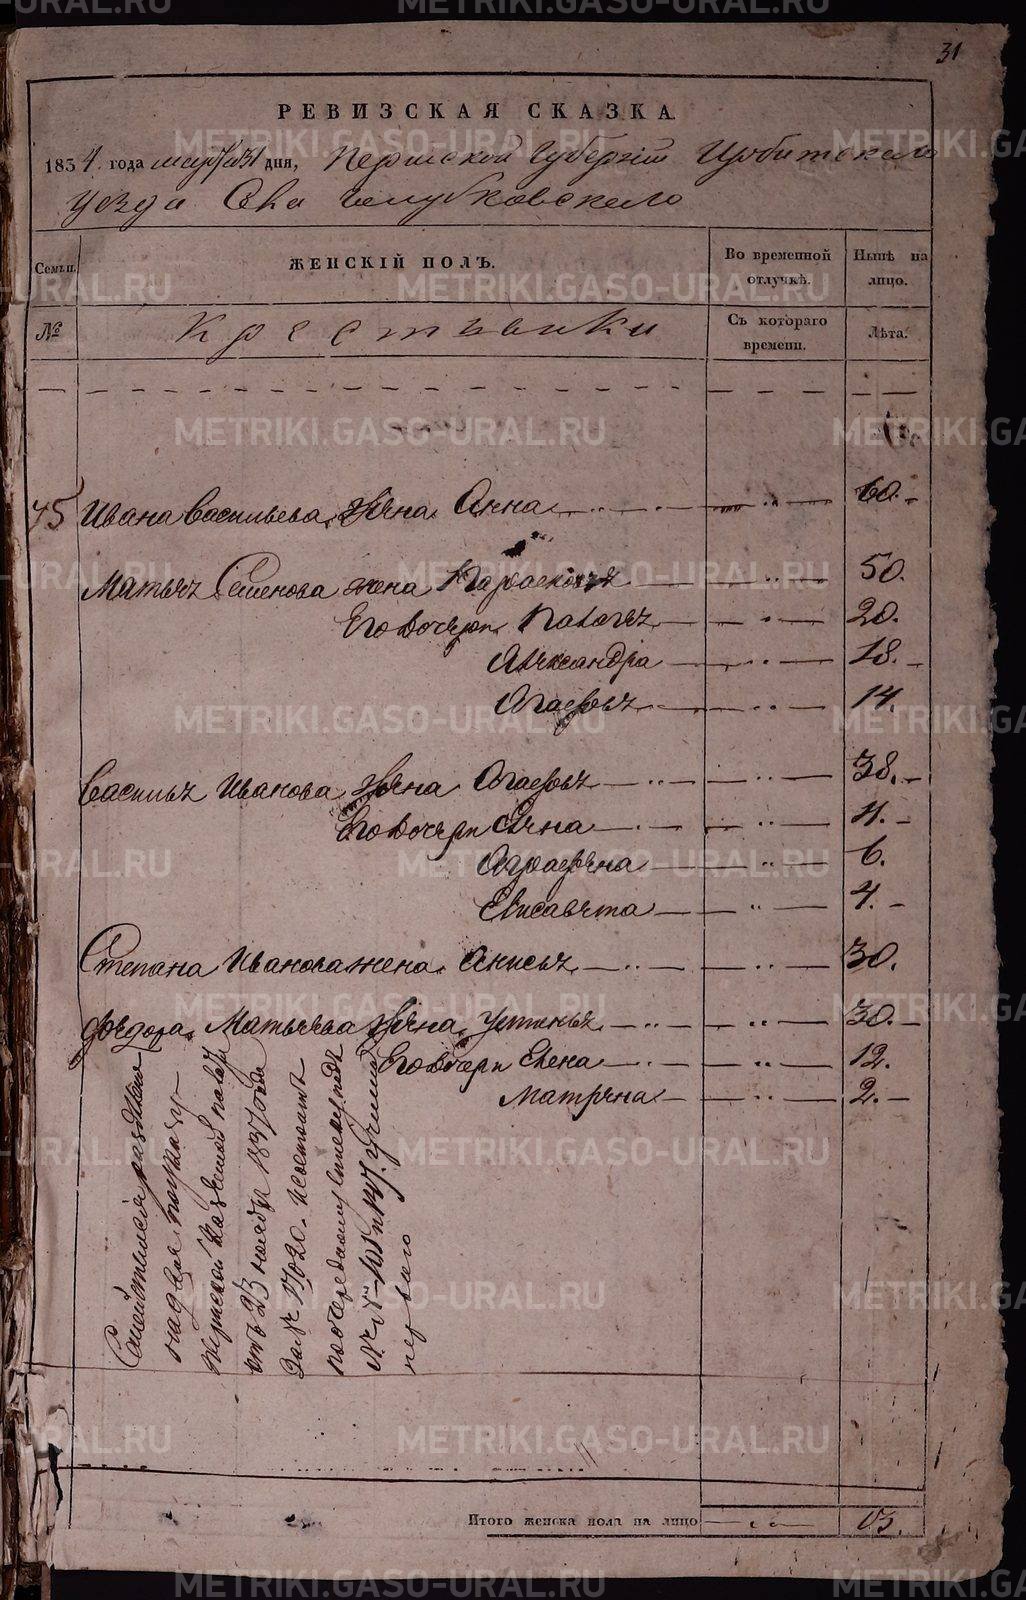 31
РЕВИЗСКАЯ СКАЗКА.
1834. года марта 31 дня, Пермской Губернiи Ирбитскаго
уезда Села Голубковскаго
Семьи. ЖЕНСКIЙ ПОЛЪ. Во временной отлучкѣ. Нынѣ на лицо.
№ Крестьянки Съ котораго времени. Лѣта.
45 Ивана Васильева жена Анна 60.
Матвѣя Семенова жена 50.
Его дочери 20.
Александра 18.
Агафья 14.
Василья Иванова жена Агафья 38.
Его дочери 11.
Аграфена 6.
Елисавета 4.
Степана Иванова жена Анисья 30.
Федора Матвѣева жена Устинья 30.
Его дочери Елена 12.
Матрена 2.
Семейство
Пермской Казенной палаты
отъ 23 ноября 1837 года
за № 17020.
Итого женска пола на лицо 13.
METRIKI.GASO-URAL.RU